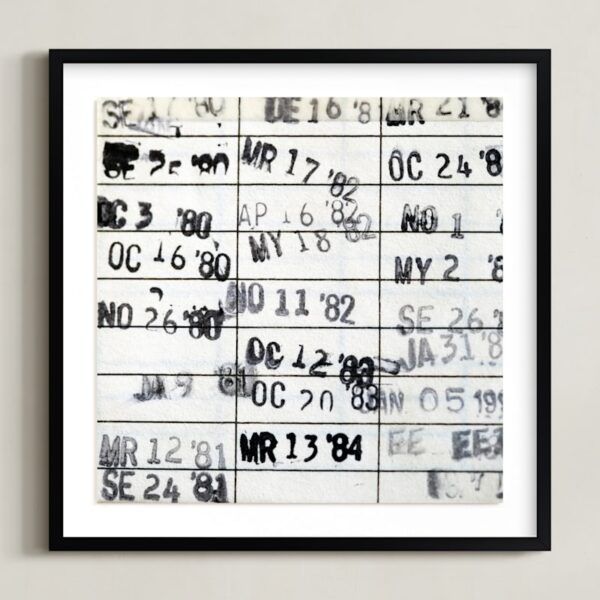 SE 17 '80
SE 25 '80
OC 3 '80
OC 16 '80
NO 26 '80
JA 9 '81
MR 12 '81
SE 24 '81
DE 16 '8
MR 17 '82
AP 16 '82
MY 18 '82
NO 11 '82
OC 12 '83
OC 20 '83
MR 13 '84
MR 21 '8
OC 24 '8
NO 1
MY 2 '8
SE 26 '
JA 31 '8
AN 05 199